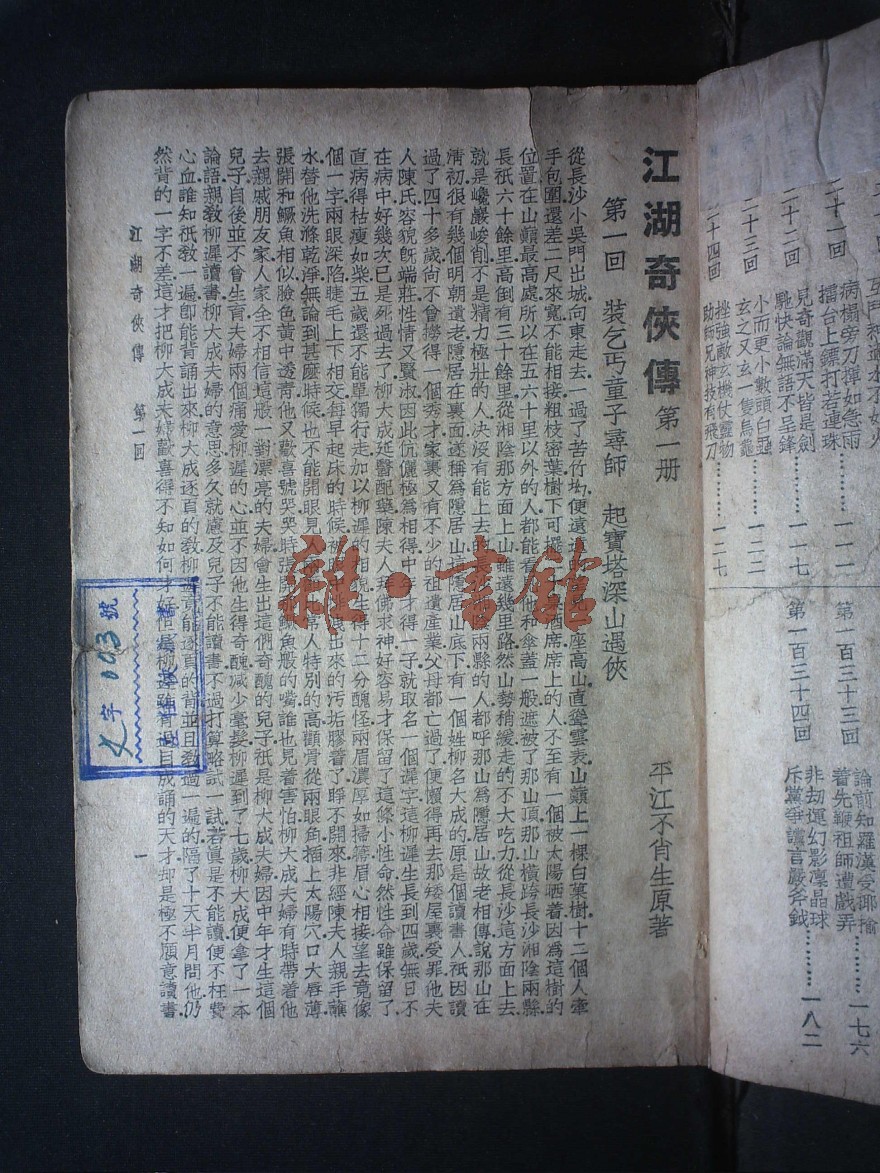 江湖奇俠傳 第一册
第一回 裝乞丐童子尋師 起寶塔深山遇俠
平江不肖生原著
從長沙小吳門出城向東走去一過了苦竹坳便遠
座高山直聳雲表山巔上一棵白菓樹十二個人牽
手包圍還差二尺來寬不能相接粗枝密葉樹下可擺
酒席席上的人不至有一個被太陽晒着因爲這樹的
位置在山巔最高處所以在五六十里以外的人都能看
他和傘蓋一般遮被了那山頂那山橫跨長沙湘陰兩縣
長祇六十餘里高倒有三十餘里從湘陰那方面上山雖遠幾里路然山勢稍緩走的不大吃力從長沙這方面上去
就是巉巖峻削不是精力極壯的人決沒有能上去的
兩縣的人都呼那山爲隱居山故老相傳說那山在
淸初很有幾個明朝遺老隱居在裏面遂稱爲隱居山
隱居山底下有一個姓柳名大成的原是個讀書人祇因讀
過了四十多歲尙不曾撈得一個秀才家裏又有不少的祖遺產業父母都亡過了便懶得再去那矮屋裏受罪他夫
人陳氏容貌旣端莊性情又賢淑因此伉儷極爲相得中年才得一子就取名一個遲字這柳遲生長到四歲無日不
在病中好幾次已是死過去了柳大成延醫配藥陳夫人拜佛求神好容易才保留了這條小性命然性命雖保留了
直病得枯瘦如柴五歲還不能單獨行走加以柳遲的相貌生得十二分醜怪兩眉濃厚如掃箒眉心相接望去竟像
個一字兩眼深陷睫毛上下相交每早起床的時候被
出來的汚垢膠着了睜不開來非經陳夫人親手蘸
水替他洗滌乾淨無論到甚麽時候也不能開眼見人
常人特別的高顴骨從兩眼角插上太陽穴口大唇薄
張開和鱖魚相似臉色黃中透靑他又歡喜號哭哭時張開
鱖魚般的嘴誰也見着害怕柳大成夫婦有時帶着他
去親戚朋友家人家全不相信這般一對漂亮的夫婦會生出這們奇醜的兒子祇是柳大成夫婦因中年才生這個
兒子自後並不曾生育夫婦兩個痛愛柳遲的心並不因他生得奇醜減少毫髮柳遲到了七歲柳大成便拿了一本
論語親敎柳遲讀書柳大成夫婦的意思多久就慮及兒子不能讀書不過打算略試一試若眞是不能讀便不枉費
心血誰知祇敎一遍卽能背誦出來柳大成逐頁的敎柳遲竟能逐頁的背並且敎過一遍的隔了十天半月問他仍
然背的一字不差這才把柳大成夫婦歡喜得不知如何才好
柳遲雖有過目成誦的天才却是極不願意讀書
江湖奇俠傳 第一回
一
字
093
號
雜·書館
二十一回
擂台上鏢打若連珠
病榻旁刀揮如急雨
二十二回
馳快論無語不呈鋒
兒奇觀滿天皆是劍
一一七
二十三回
玄之又玄一隻烏龜
小而更小數頭白蝨
一二二
二十四回
助師兄神技有飛刀
挫強敵玄機仗靈物
一二七
第一百三十三回
着先鞭祖師遭戲弄
論前知羅漢受揶揄
一七六
第一百三十四回
斥黨爭讜言嚴斧鉞
非劫運幻影凛晶球
一八二